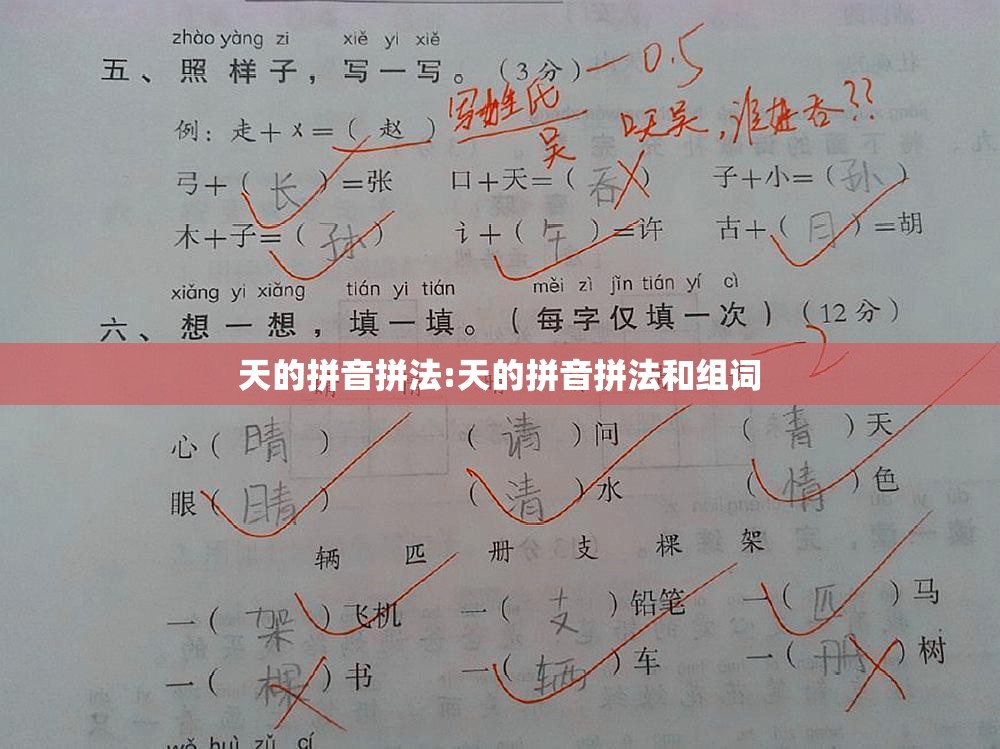 zhào yàng zi xiě yi xiě
五、照样子，写一写。（3分） —0.5
例：走＋㐅＝（赵） 写姓氏 吴 口天吴，谁姓吞??
弓＋（长）＝张 口＋天＝（吞） 子＋小＝（孙）
木＋子＝（孙） 讠＋（午）＝许 古＋（月）＝胡
xiǎng yi xiǎng tián yi tián měi zì jǐn tián yí cì
六、想一想，填一填。（每字仅填一次）（12分）
—2
天的拼音拼法:天的拼音拼法和组词
心（晴） （请）问 （青）天
眼（睛） （清）水 （情）色
辆 匹 册 支 棵 架
一（架）飞机 一（支）铅笔 一（匹）马
一（棵）书 一（辆）车 一（册）树
wǒ huì zǔ cí